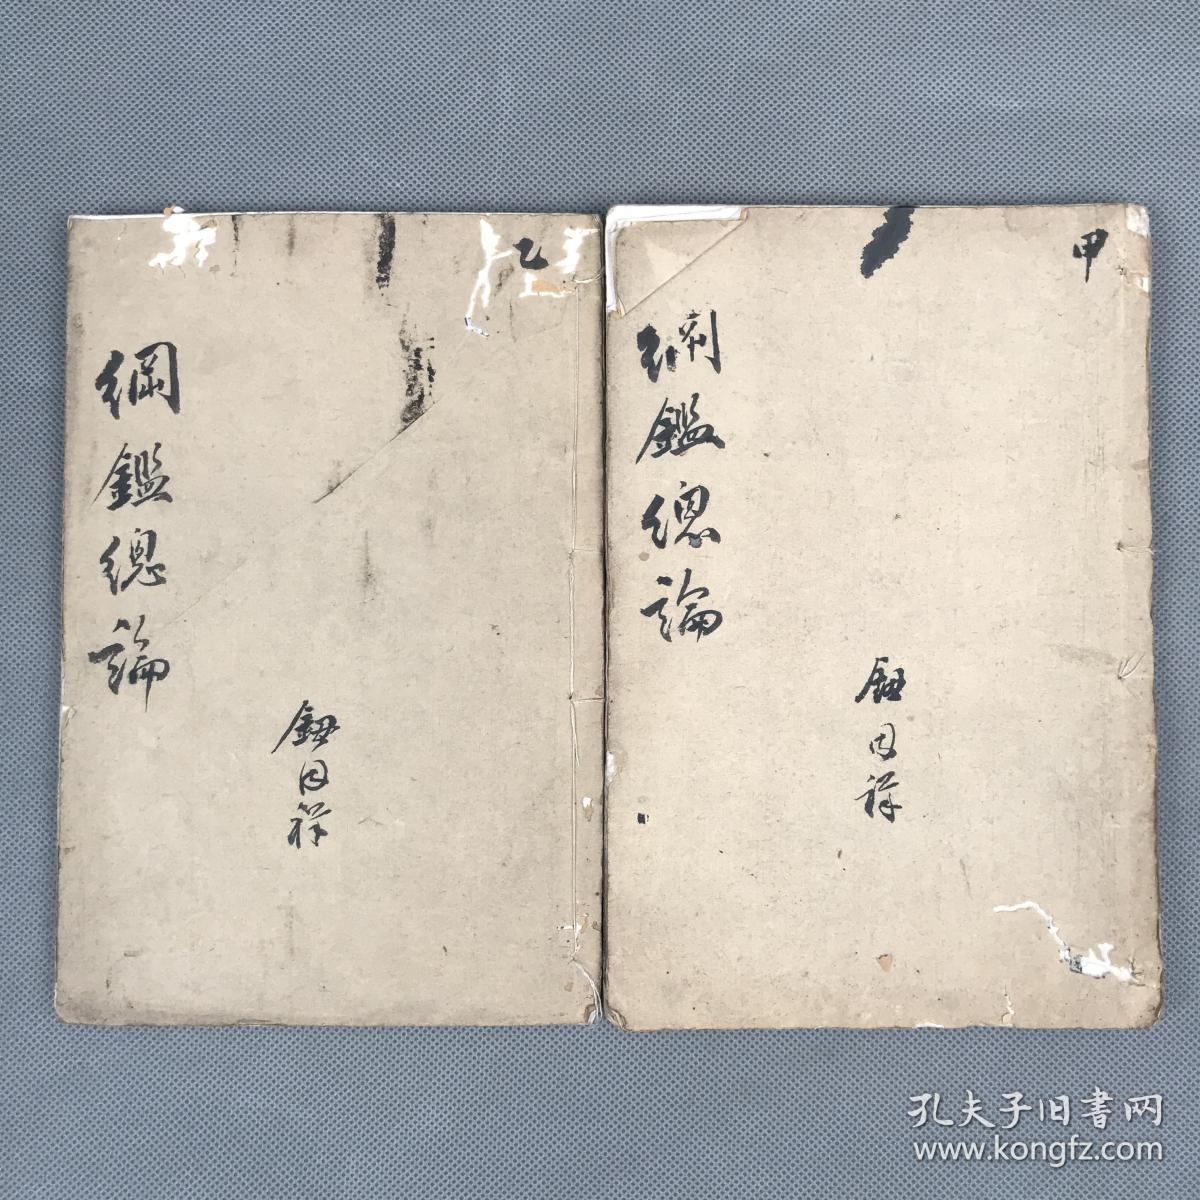 甲
綱鑑總論
鈕因祥
乙
綱鑑總論
鈕因祥
孔夫子旧書网
www.kongfz.com